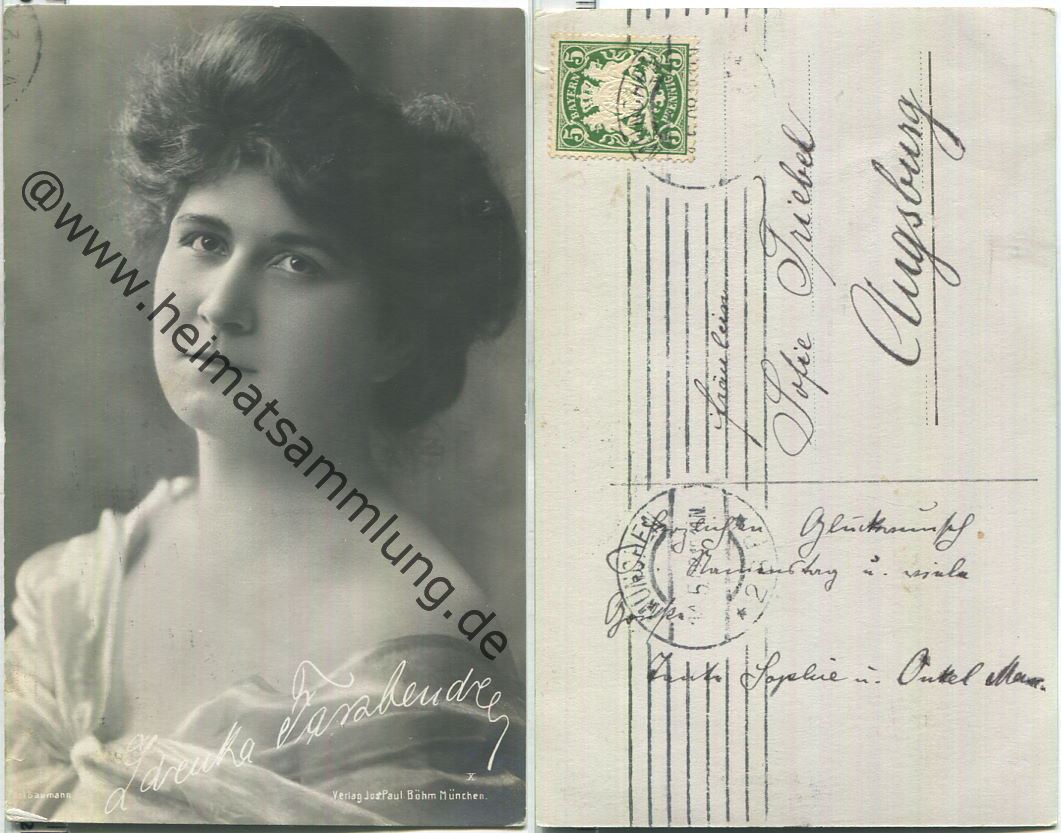 @www.heimatsammlung.de
Zdenka Fassbender
Baumann
X
Verlag Jos. Paul Böhm München.
5 5
BAYERN
5 5
Fräulein
Sofie Triebel
Augsburg
MÜNCHEN
Herzlichen Glückwunsch
z. Namenstag u. viele
Grüße
Tante Sophie u. Onkel Max.